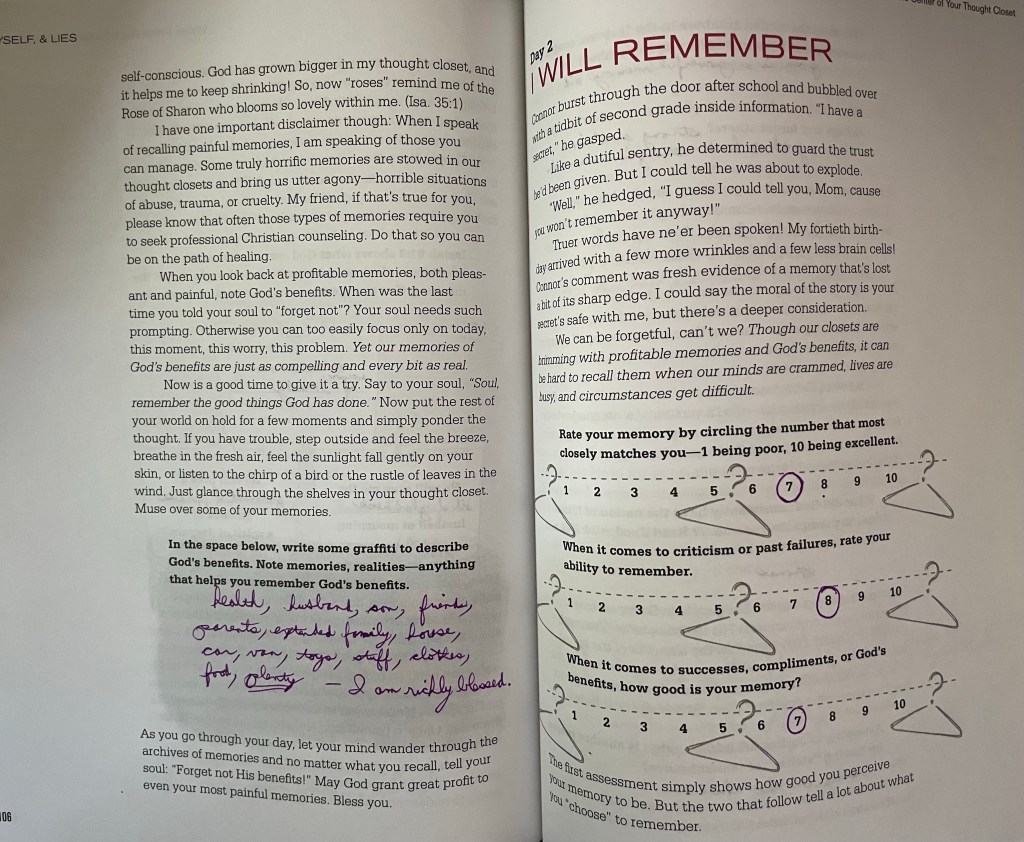 YSELF, & LIES
self-conscious. God has grown bigger in my thought closet, and
it helps me to keep shrinking! So, now "roses" remind me of the
Rose of Sharon who blooms so lovely within me. (Isa. 35:1)
I have one important disclaimer though: When I speak
of recalling painful memories, I am speaking of those you
can manage. Some truly horrific memories are stowed in our
thought closets and bring us utter agony—horrible situations
of abuse, trauma, or cruelty. My friend, if that's true for you,
please know that often those types of memories require you
to seek professional Christian counseling. Do that so you can
be on the path of healing.
When you look back at profitable memories, both pleas-
ant and painful, note God's benefits. When was the last
time you told your soul to "forget not"? Your soul needs such
prompting. Otherwise you can too easily focus only on today,
this moment, this worry, this problem. Yet our memories of
God's benefits are just as compelling and every bit as real.
Now is a good time to give it a try. Say to your soul, "Soul,
remember the good things God has done." Now put the rest of
your world on hold for a few moments and simply ponder the
thought. If you have trouble, step outside and feel the breeze,
breathe in the fresh air, feel the sunlight fall gently on your
skin, or listen to the chirp of a bird or the rustle of leaves in the
wind. Just glance through the shelves in your thought closet.
Muse over some of your memories.
In the space below, write some graffiti to describe
God's benefits. Note memories, realities—anything
that helps you remember God's benefits.
health, husband, son, friends,
parents, extended family, house,
car, van, toys, stuff, clothes,
food, plenty — I am richly blessed.
As you go through your day, let your mind wander through the
archives of memories and no matter what you recall, tell your
soul: "Forget not His benefits!" May God grant great profit to
even your most painful memories. Bless you.
106
Center of Your Thought Closet
Day 2
I WILL REMEMBER
Connor burst through the door after school and bubbled over
with a tidbit of second grade inside information. "I have a
secret," he gasped.
Like a dutiful sentry, he determined to guard the trust
he'd been given. But I could tell he was about to explode.
"Well," he hedged, "I guess I could tell you, Mom, cause
you won't remember it anyway!"
Truer words have ne'er been spoken! My fortieth birth-
day arrived with a few more wrinkles and a few less brain cells!
Connor's comment was fresh evidence of a memory that's lost
a bit of its sharp edge. I could say the moral of the story is your
secret's safe with me, but there's a deeper consideration.
We can be forgetful, can't we? Though our closets are
brimming with profitable memories and God's benefits, it can
be hard to recall them when our minds are crammed, lives are
busy, and circumstances get difficult.
Rate your memory by circling the number that most
closely matches you—1 being poor, 10 being excellent.
1 2 3 4 5 6 7 8 9 10
When it comes to criticism or past failures, rate your
ability to remember.
1 2 3 4 5 6 7 8 9 10
When it comes to successes, compliments, or God's
benefits, how good is your memory?
1 2 3 4 5 6 7 8 9 10
The first assessment simply shows how good you perceive
your memory to be. But the two that follow tell a lot about what
you "choose" to remember.